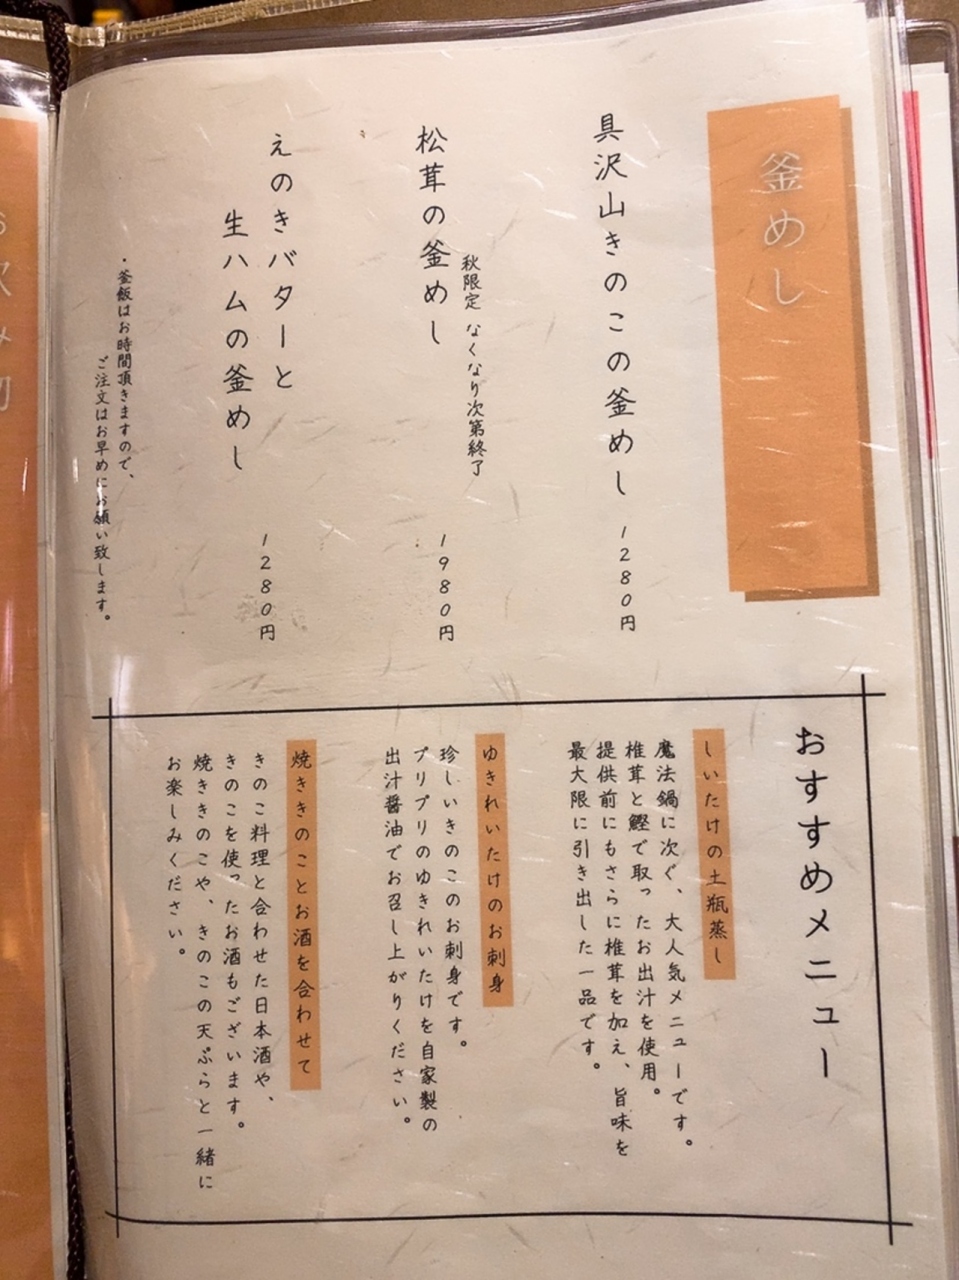 釜めし
具沢山きのこの釜めし 1280円
秋限定 なくなり次第終了
松茸の釜めし 1980円
えのきバターと
生ハムの釜めし 1280円
・釜飯はお時間頂きますので、
ご注文はお早めにお願い致します。
おすすめメニュー
しいたけの土瓶蒸し
魔法鍋に次ぐ、大人気メニューです。
椎茸と鰹で取ったお出汁を使用。
提供前にもさらに椎茸を加え、旨味を
最大限に引き出した一品です。
ゆきれいたけのお刺身
珍しいきのこのお刺身です。
プリプリのゆきれいたけを自家製の
出汁醤油でお召し上がりください。
焼ききのことお酒を合わせて
きのこ料理と合わせた日本酒や、
きのこを使ったお酒もございます。
焼ききのこや、きのこの天ぷらと一緒に
お楽しみください。